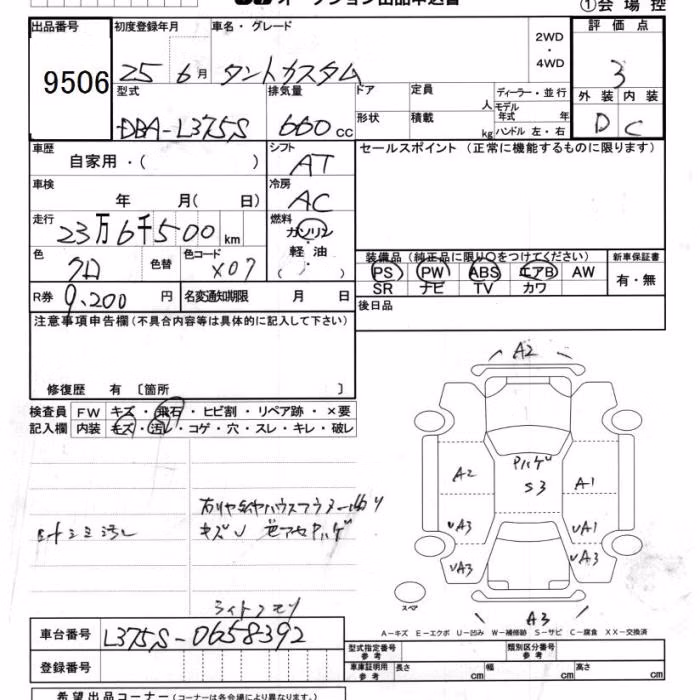 オークション出品申込書
①会場控
出品番号
9506
初度登録年月
25 6月
車名・グレード
タントカスタム
2WD
・
4WD
評価点
3
外装 内装
D C
型式
DBA-L375S
排気量
660 CC
ドア
形状
定員 人
積載 kg
ディーラー・並行
モデル
年式 年
ハンドル 左・右
車歴
自家用・( )
シフト
AT
セールスポイント(正常に機能するものに限ります)
車検
年 月( 日)
冷房
AC
走行
23万6千500 km
燃料
ガソリン
軽・油
( )
色
クロ
色替
色コード
X07
装備品(純正品に限り○をつけてください)
PS PW ABS エアB AW
SR ナビ TV カワ
新車保証書
有・無
R券
9,200 円
名変通知期限 月 日
後日品
注意事項申告欄(不具合内容等は具体的に記入して下さい)
修復歴 有〔箇所 〕
検査員
記入欄
FW キズ・飛石・ヒビ割・リペア跡・×要
内装 キズ・汚レ・コゲ・穴・スレ・キレ・破レ
A2
Pハゲ
S3
A2
A1
UA3
UA1
UA3
UA3
A3
スペア
シミ汚レ
キズU 色アセPハゲ
A-キズ E-エクボ U-凹み W-補修跡 S-サビ C-腐食 XX-交換済
車台番号
L375S-0658392
登録番号
型式指定番号
参考
類別区分番号
参考
車庫証明用
参考
長さ cm
幅 cm
高さ cm
希望出品コーナー(コーナーは各会場により異なります。)